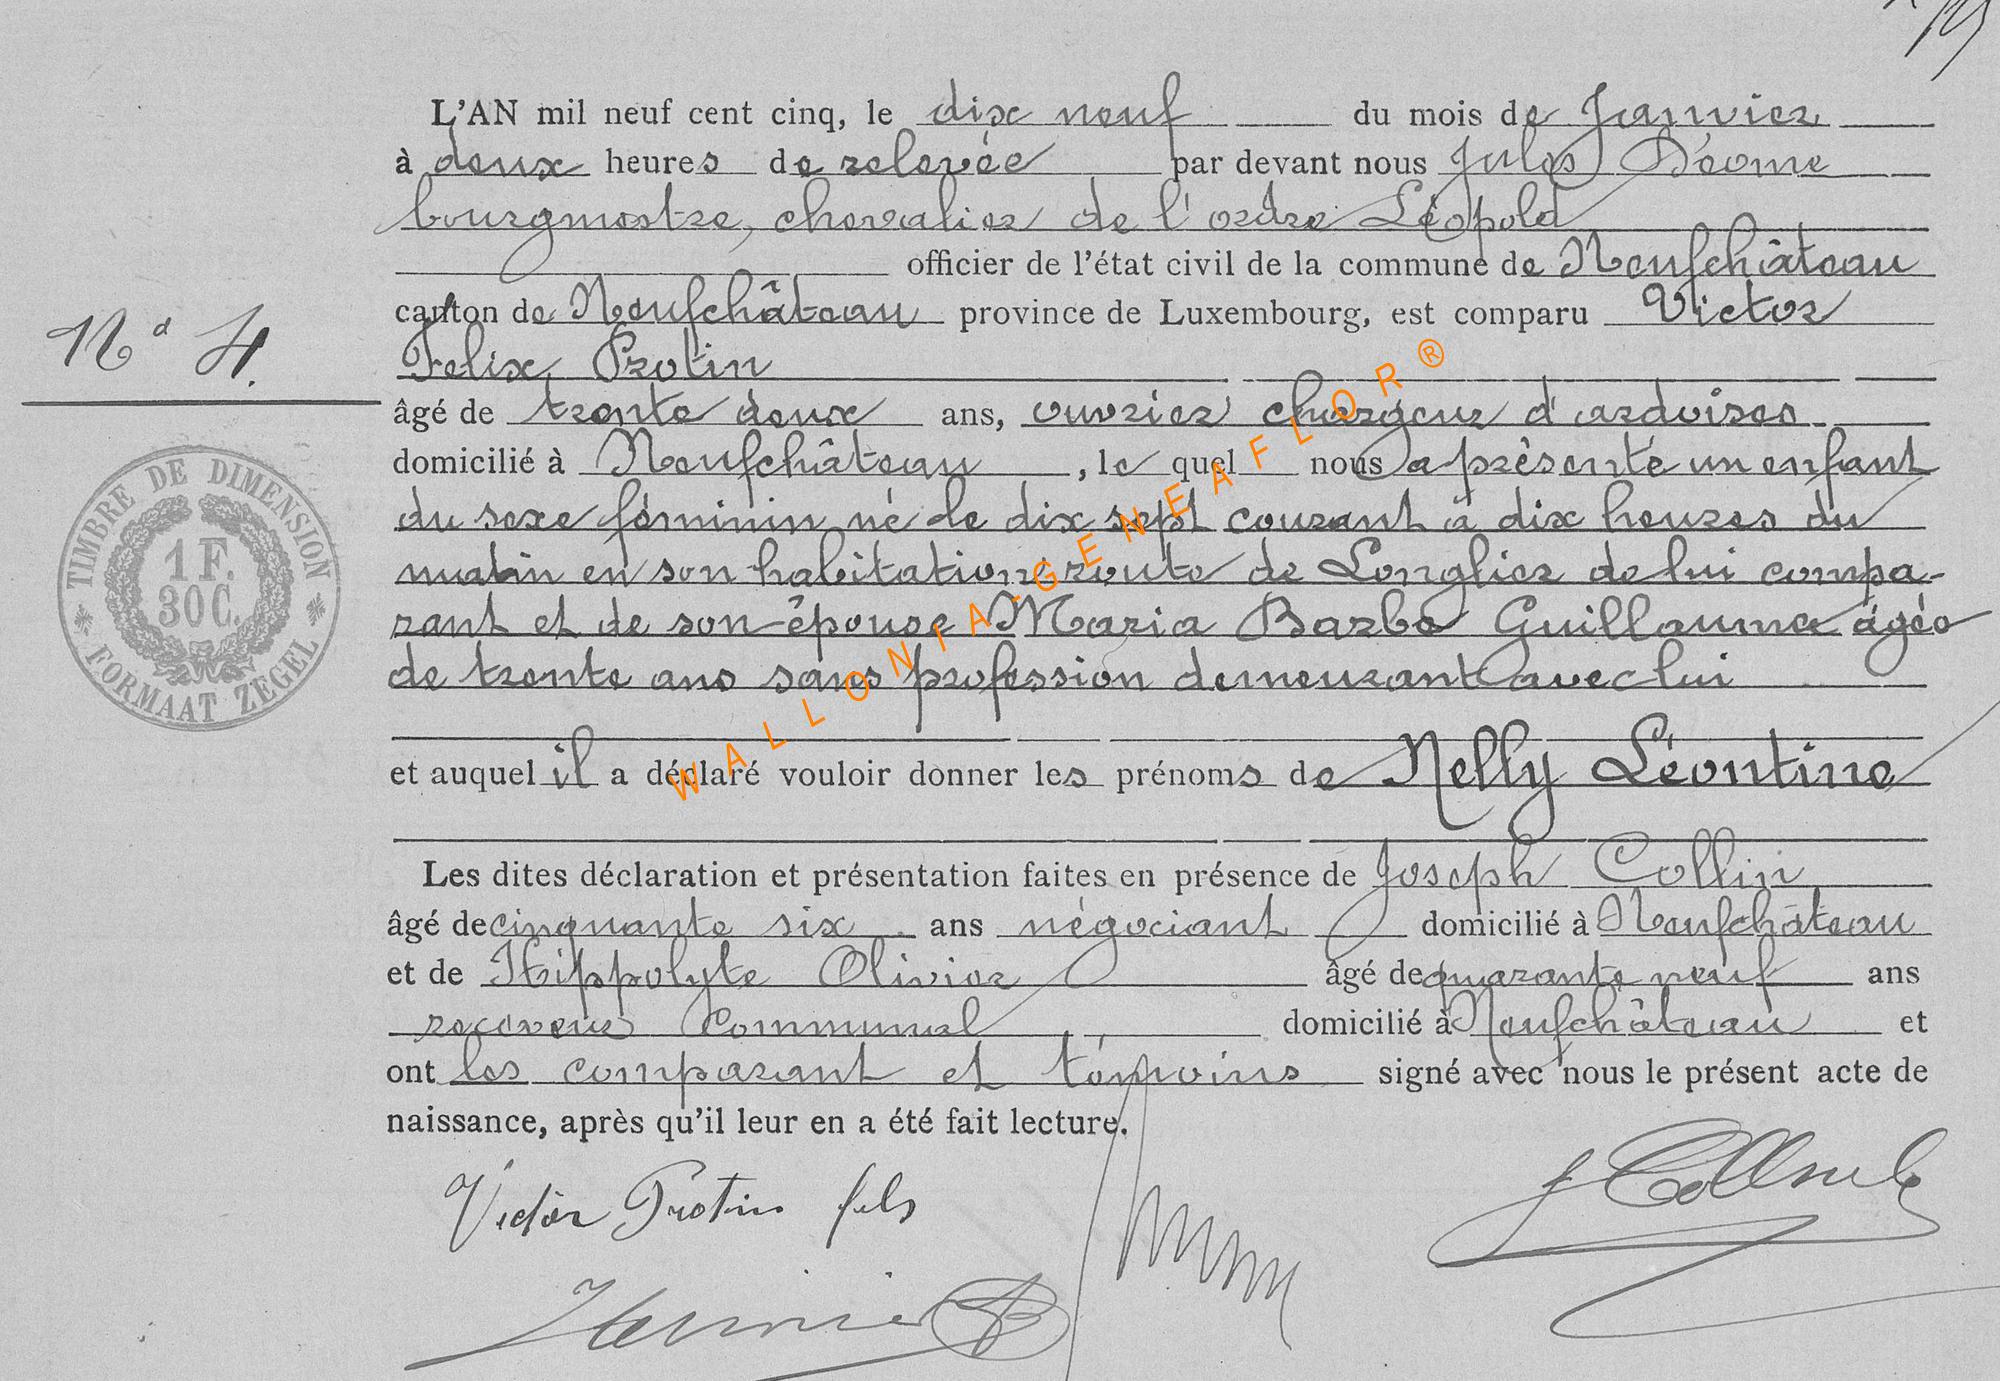 L'AN mil neuf cent cinq, le dix neuf du mois de Janvier
à deux heures de relevée par devant nous Jules Déome
bourgmestre, chevalier de l'ordre Léopold
officier de l'état civil de la commune de Neufchâteau
canton de Neufchâteau province de Luxembourg, est comparu Victor
Felix Protin
N° 4.
âgé de trente deux ans, ouvrier chargeur d'ardoises
domicilié à Neufchâteau, le quel nous a présenté un enfant
du sexe féminin né le dix sept courant à dix heures du
matin en son habitation route de Longlier de lui compa-
rant et de son épouse Maria Barbe Guillaume âgée
de trente ans sans profession demeurant avec lui
et auquel il a déclaré vouloir donner les prénoms de Nelly Léontine
Les dites déclaration et présentation faites en présence de Joseph Collin
âgé de cinquante six ans négociant domicilié à Neufchâteau
et de Hippolyte Olivier âgé de quarante neuf ans
receveur Communal domicilié à Neufchâteau et
ont les comparant et témoins signé avec nous le présent acte de
naissance, après qu'il leur en a été fait lecture.
Victor Protin fils
J Collin
TIMBRE DE DIMENSION
1 F.
30 C.
FORMAAT ZEGEL
WALLONIA-GENEAFLOR®